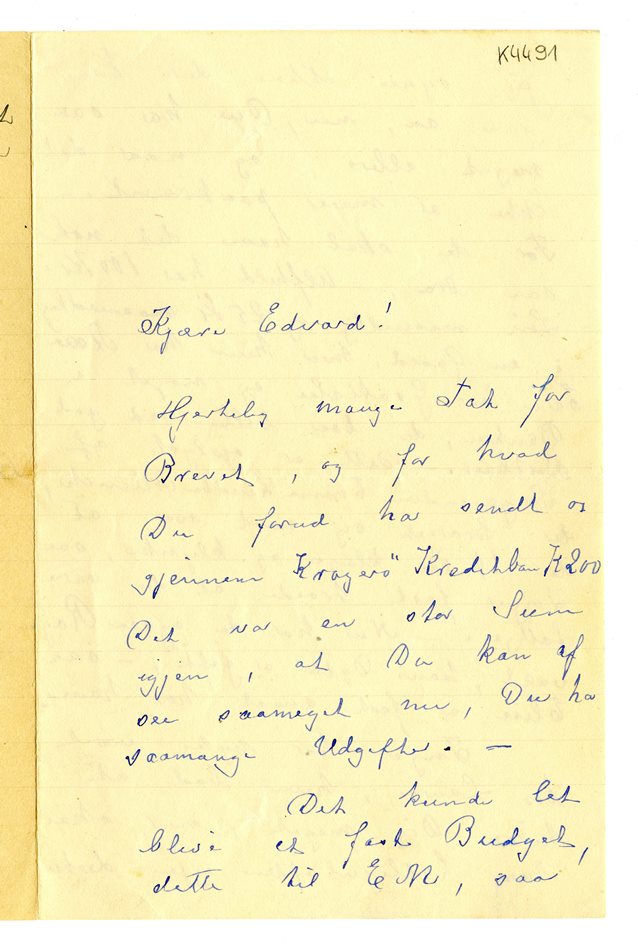 K4491
Kjære Edvard!
Hjertelig mange Tak for
Brevet, og for hvad
Du forud har sendt os
gjennem Kragerö Kreditban, K200
Det var en stor Sum
igjen, at Du kan af
see saameget nu, Du ha
saamange Udgifter. —
Det kunde let
blive et fast Budget,
dette til EM, saa